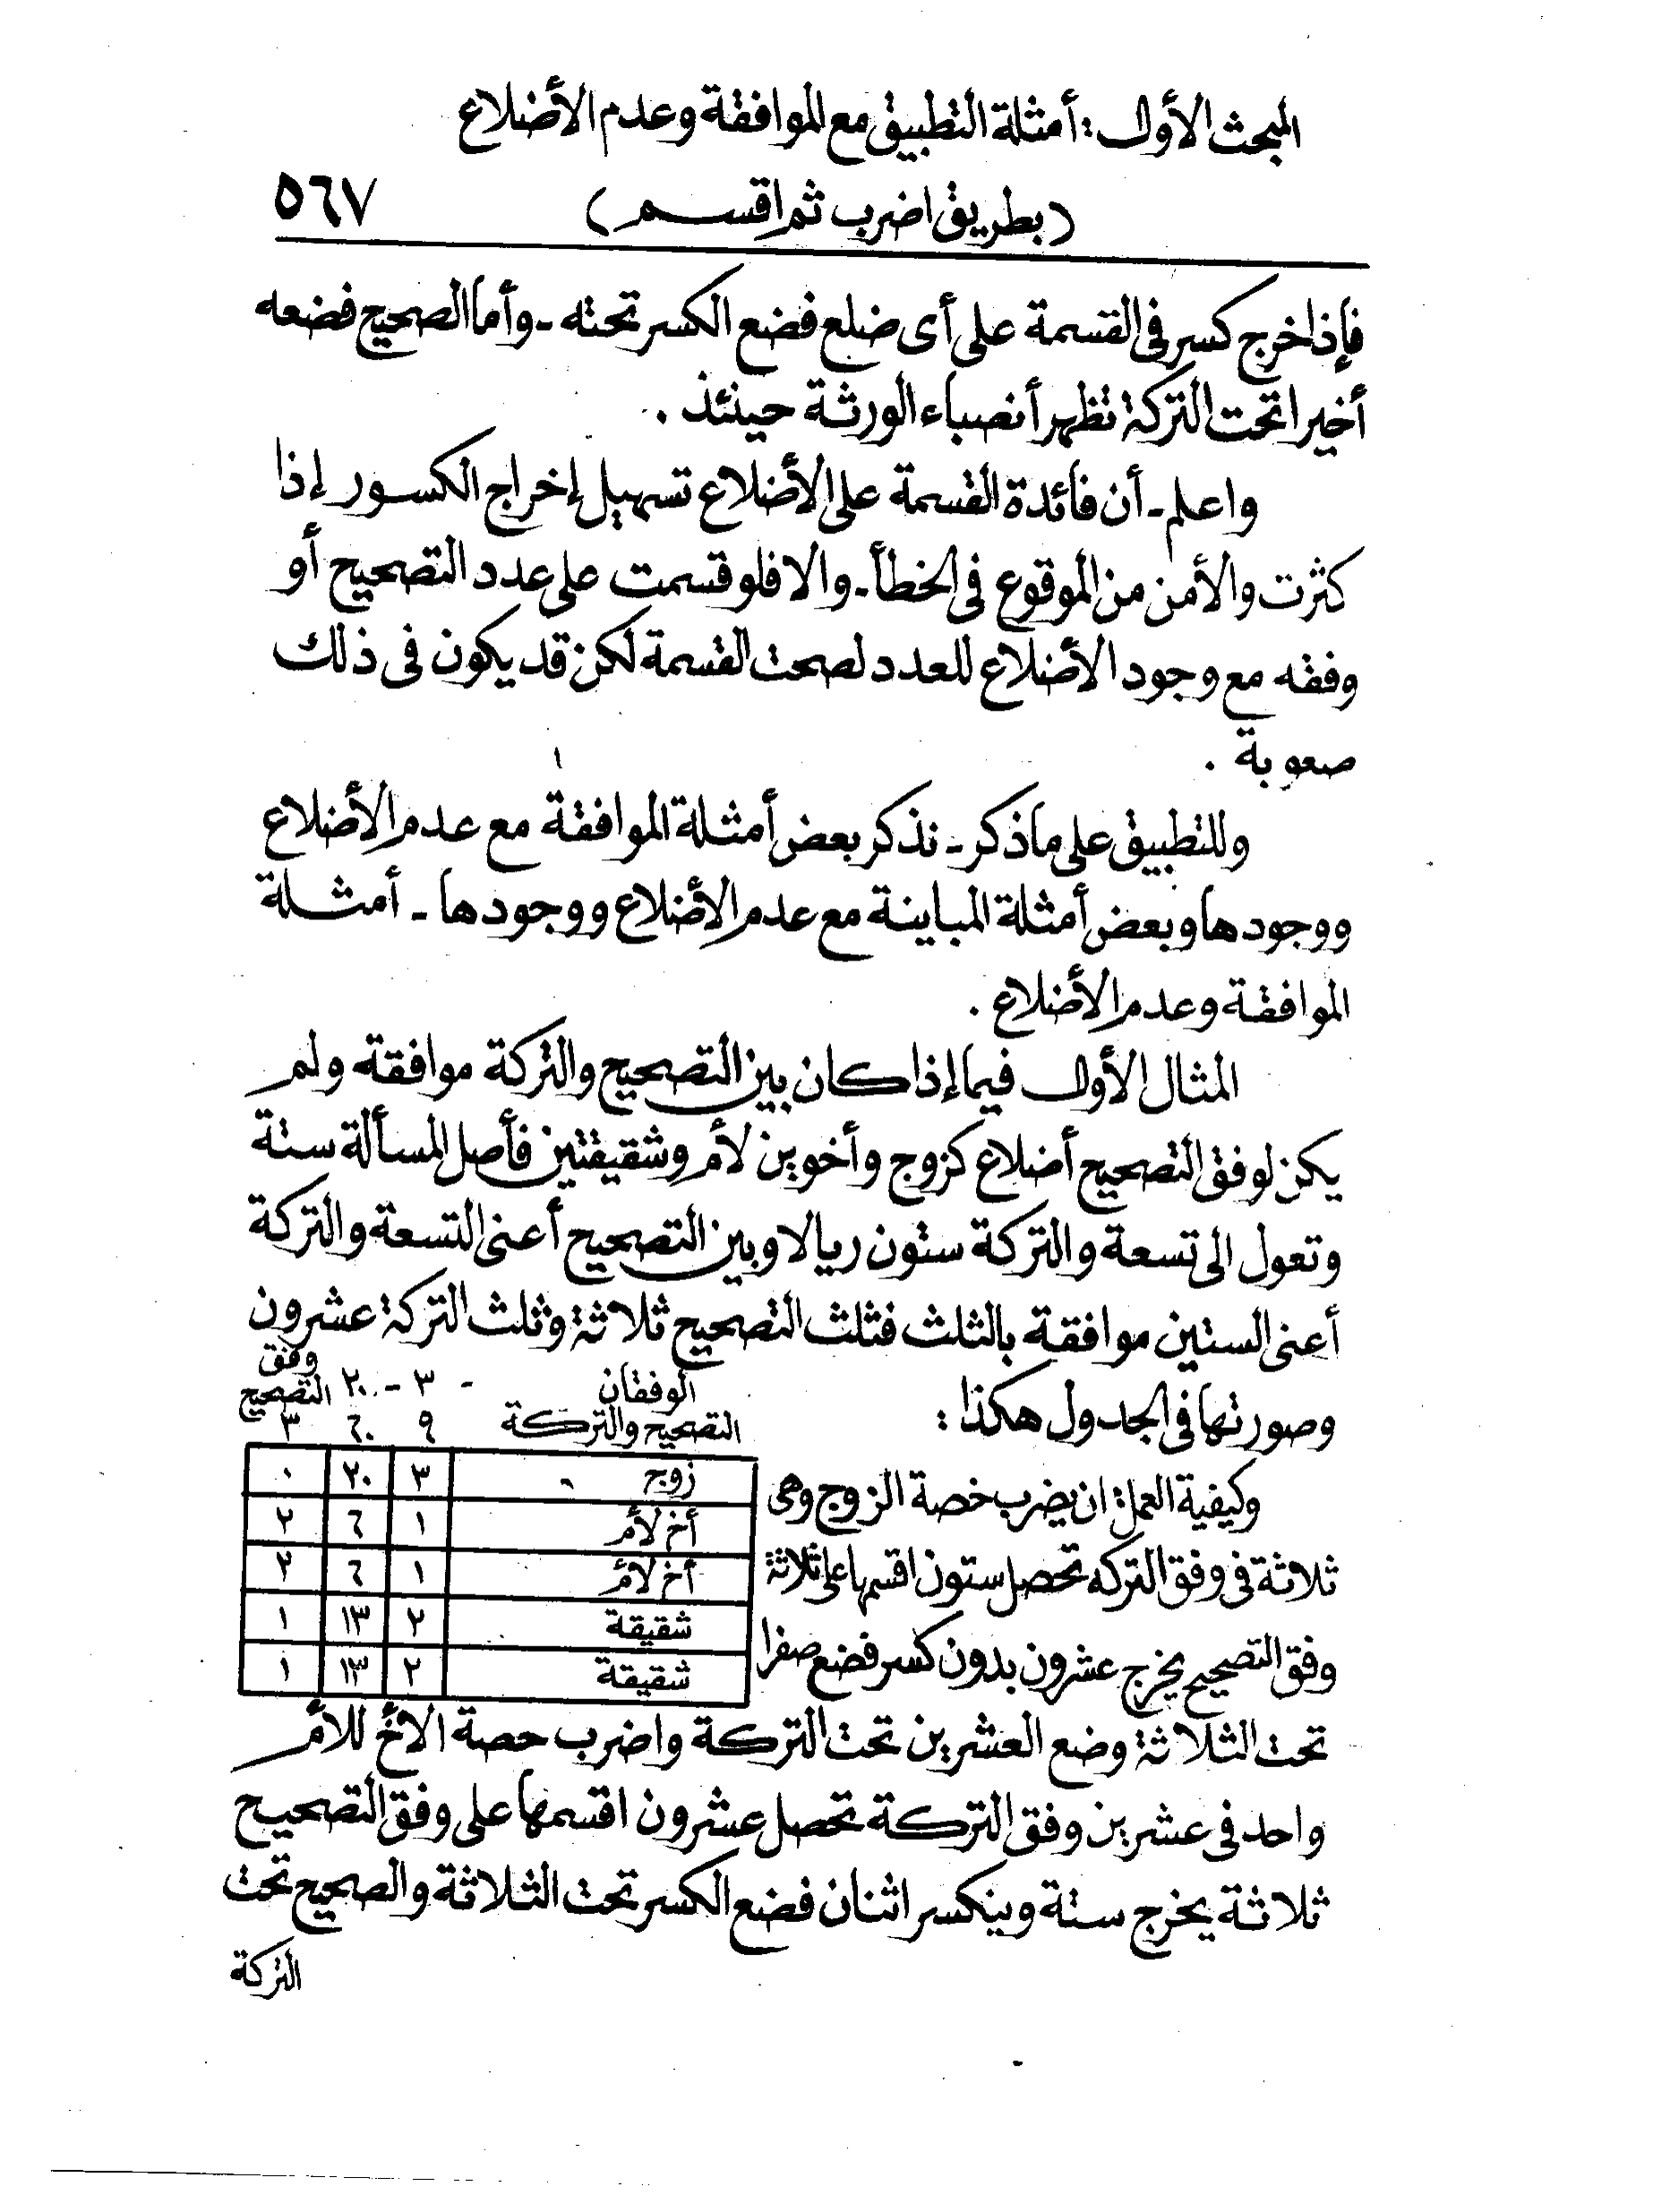 المبحث الأول : أمثلة التطبيق مع الموافقة وعدم الأضلاع
(بطريق اضرب ثم اقسم)
٥٦٧
فإذا خرج كسر فى القسمة على أى ضلع فضع الكسر تحته - وأما الصحيح فضعه
أخيرا تحت التركة تظهر أنصباء الورثة حينئذ .
واعلم - أن فائدة القسمة على الأضلاع تسهيل إخراج الكسور إذا
كثرت والأمن من الموقوع فى الخطأ - والا فلو قسمت على عدد التصحيح أو
وفقه مع وجود الأضلاع للعدد لصحت القسمة لكن قد يكون فى ذلك
صعوبة .
وللتطبيق على ماذكر - نذكر بعض أمثلة الموافقة مع عدم الأضلاع
ووجودها وبعض أمثلة المباينة مع عدم الأضلاع ووجودها - أمثلة
الموافقة وعدم الأضلاع .
المثال الأول فيما إذا كان بين التصحيح والتركة موافقة ولم
يكن لوفق التصحيح أضلاع كزوج وأخوين لأم وشقيقتين فأصل المسألة ستة
وتعول الى تسعة والتركة ستون ريالا وبين التصحيح أعنى التسعة والتركة
أعنى الستين موافقة بالثلث فثلث التصحيح ثلاثة وثلث التركة عشرون
وصورتها فى الجدول هكذا :
الوفقان - ٣ - ٢٠ وفق التصحيح
التصحيح والتركة ٩ ٦٠ ٣
زوج ٣ ٢٠ ٠
أخ لأم ١ ٦ ٢
أخ لأم ١ ٦ ٢
شقيقة ٢ ١٣ ١
شقيقة ٢ ١٣ ١
وكيفية العمل : ان يضرب خصة الزوج وهى
ثلاثة فى وفق التركه تحصل ستون اقسمها على ثلاثة
وفق التصحيح يخرج عشرون بدون كسر فضع صفرا
تحت الثلاثة وضع العشرين تحت التركة واضرب حصة الاخ للأم
واحد فى عشرين وفق التركة تحصل عشرون اقسمها على وفق التصحيح
ثلاثة يخرج ستة وينكسر اثنان فضع الكسر تحت الثلاثة والصحيح تحت
التركة